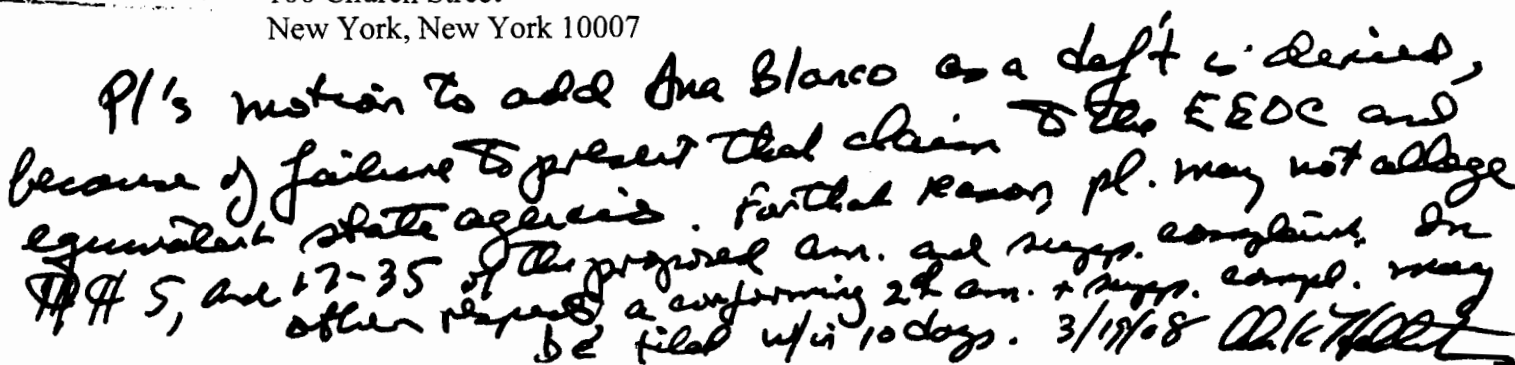 100 Church Street
New York, New York 10007
Pl's motion to add Ana Blanco as a def't is denied,
because of failure to present that claim to the EEOC and
equivalent state agencies. For that reason, pl. may not allege
¶¶ 5, and 17-35 of the proposed am. and supp. complaint. In
other respects, a conforming 2d am. + supp. compl. may
be filed w/in 10 days. 3/19/08